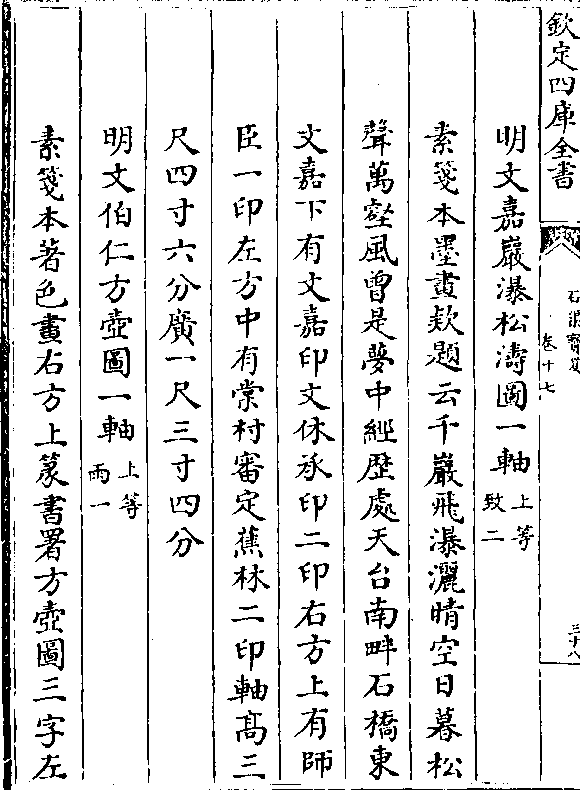 欽定四庫全書
石渠寳笈
卷十七
三十八
明文嘉巖瀑松濤圖一軸 上等
致二
素箋本墨畫欵題云千巖飛瀑灑晴空日暮松
聲萬壑風曾是夢中經歴處天台南畔石橋東
文嘉下有文嘉印文休承印二印右方上有師
臣一印左方中有棠村審定蕉林二印軸髙三
尺四寸六分廣一尺三寸四分
明文伯仁方壺圖一軸 上等
雨一
素箋本著色畫右方上篆書署方壺圖三字左